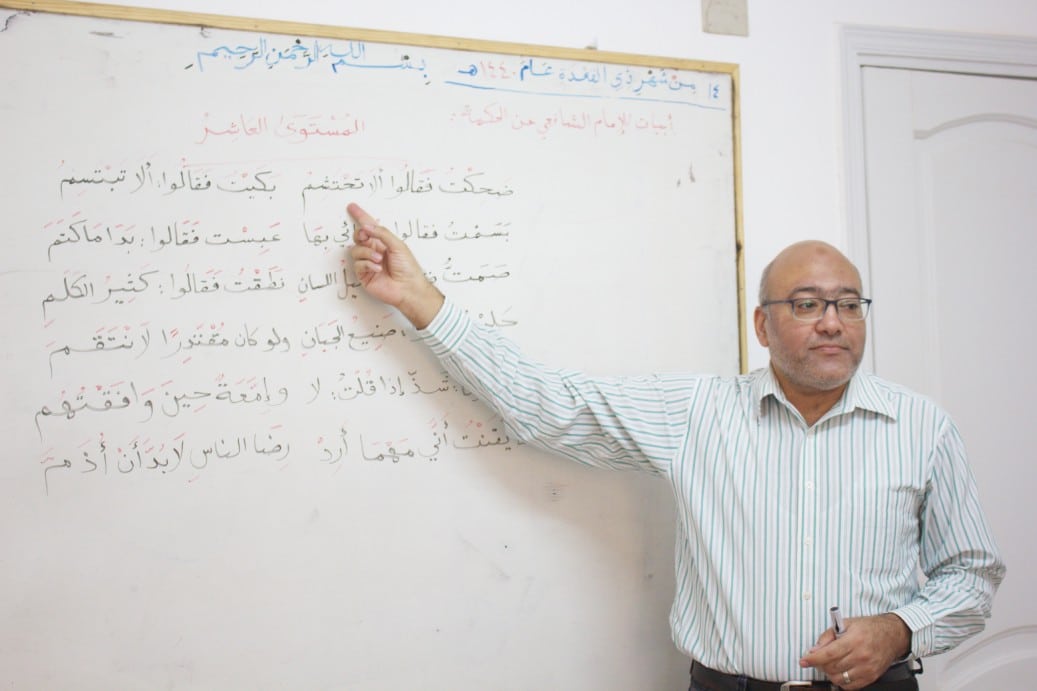 بِسْمِ اللهِ الرَّحْمَنِ الرَّحِيمِ
١٤ مِنْ شَهْرِ ذِي القَعْدَةِ عَامَ ١٤٤٠هـ
أبيات للإمام الشافعي عن الحكمة:
المُسْتَوَى العَاشِرُ
ضَحِكْتُ فَقَالُوا أَلَا تَحْتَشِمْ بَكَيْتُ فَقَالُوا: أَلَا تَبْتَسِمُ
بَسَمْتُ فَقَالُوا يُرَائِي بِهَا عَبِسْتُ فَقَالُوا: بَدَا مَا كَتَمَ
صَمَتُّ اللسانِ نَطَقْتُ فَقَالُوا: كَثِيرُ الكَلَمِ
صَنِيعُ الجَبَانِ ولو كان مُقْتَدِرًا لَانْتَقَمَ
شَذَّ إذا قُلْتُ: لا وإِمَّعَةٌ حِينَ وَافَقْتُهُم
أَنِّي مَهْمَا أُرِدْ رِضَا الناسِ لَابُدَّ أَنْ أُذَمَّ